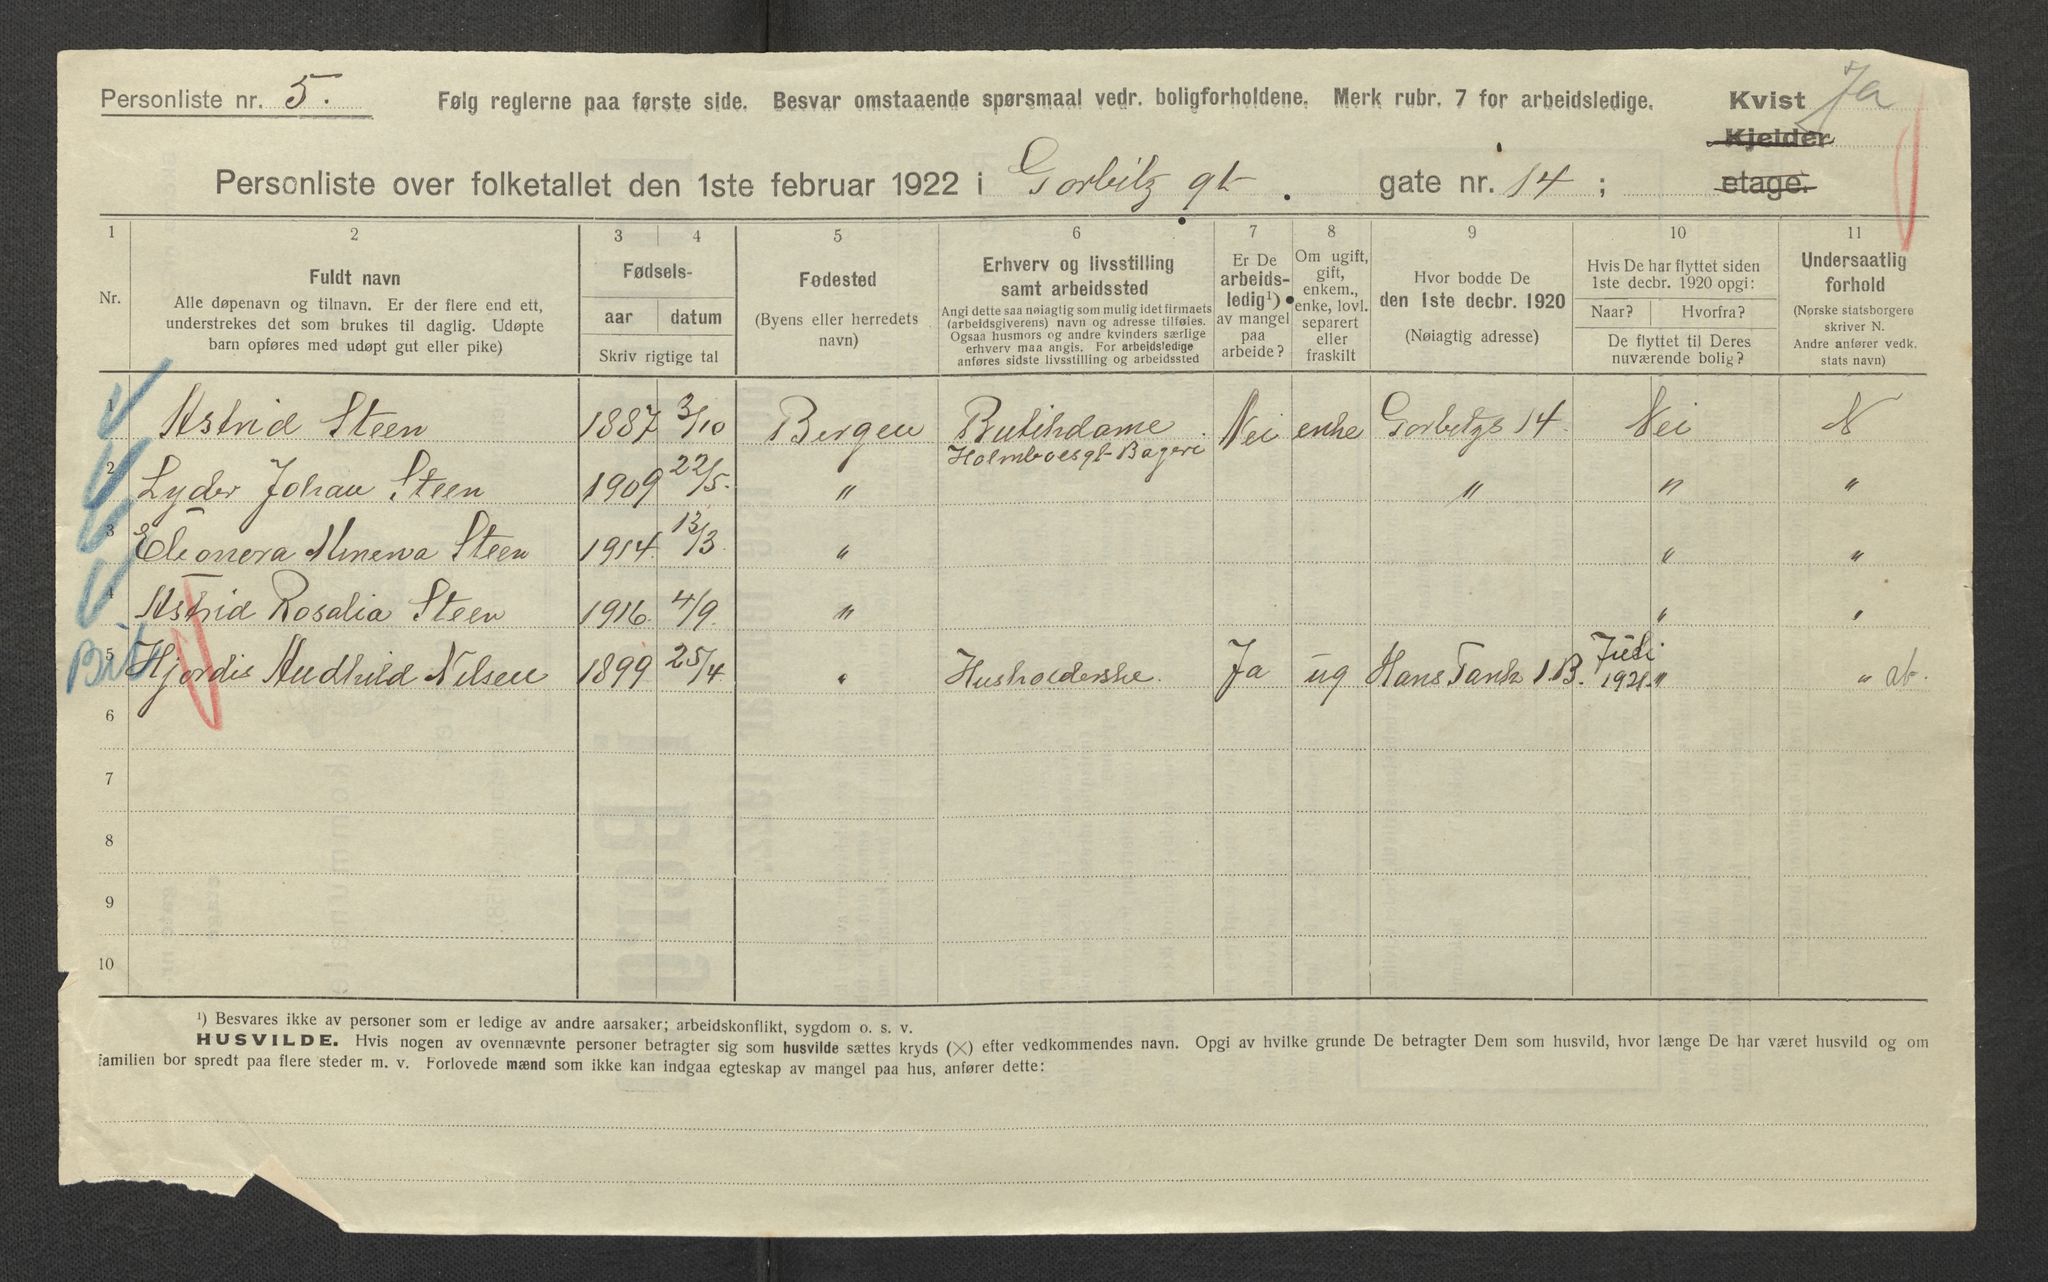 Personliste nr. 5.
Følg reglerne paa første side. Besvar omstaaende spørsmaal vedr. boligforholdene. Merk rubr. 7 for arbeidsledige.
Kvist Ja
Kjelder
etage.
Personliste over folketallet den 1ste februar 1922 i Gorbitz gt. gate nr. 14 ;
1 2 3 4 5 6 7 8 9 10 11
Nr.
Fuldt navn
Alle døpenavn og tilnavn. Er der flere end ett,
understrekes det som brukes til daglig. Udøpte
barn opføres med udøpt gut eller pike)
Fødsels-
aar datum
Skriv rigtige tal
Fødested
(Byens eller herredets
navn)
Erhverv og livsstilling
samt arbeidssted
Angi dette saa nøiagtig som mulig idet firmaets
(arbeidsgiverens) navn og adresse tilføies.
Ogsaa husmors og andre kvinders særlige
erhverv maa angis. For arbeidsledige
anføres sidste livsstilling og arbeidssted
Er De
arbeids-
ledig¹)
av mangel
paa
arbeide?
Om ugift,
gift,
enkem.,
enke, lovl.
separert
eller
fraskilt
Hvor bodde De
den 1ste decbr. 1920
(Nøiagtig adresse)
Hvis De har flyttet siden
1ste decbr. 1920 opgi:
Naar? Hvorfra?
De flyttet til Deres
nuværende bolig?
Undersaatlig
forhold
(Norske statsborgere
skriver N.
Andre anfører vedk.
stats navn)
1 Astrid Steen 1887 3/10 Bergen Butikdame Nei enke Gorbitzgs 14. Nei N
Holmboesgt Bageri
2 Lyder Johan Steen 1909 22/5. " " " "
3 Eleonora Minerva Steen 1914 13/3 " " "
4 Astrid Rosalia Steen 1916 4/9. " " "
5 Hjordis Audhild Nilsen 1899 25/4 " Husholderske. Ja ug Hans Tanks 1.B. Juli 1921. " " at.
6
7
8
9
10
¹) Besvares ikke av personer som er ledige av andre aarsaker; arbeidskonflikt, sygdom o. s. v.
HUSVILDE. Hvis nogen av ovennævnte personer betragter sig som husvilde sættes kryds (×) efter vedkommendes navn. Opgi av hvilke grunde De betragter Dem som husvild, hvor længe De har været husvild og om
familien bor spredt paa flere steder m. v. Forlovede mænd som ikke kan indgaa egteskap av mangel paa hus, anfører dette: